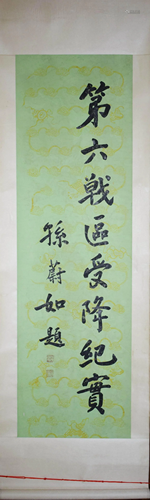 第六戰區受降紀實
孫蔚如題